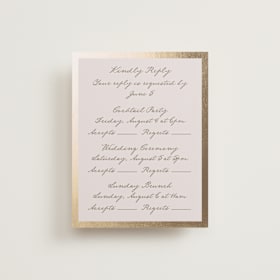 Kindly Reply
Your reply is requested by
June 5
Cocktail Party
Friday, August 4 at 6pm
Accepts _____ Regrets _____
Wedding Ceremony
Saturday, August 5 at 5pm
Accepts _____ Regrets _____
Sunday Brunch
Sunday, August 6 at 11am
Accepts _____ Regrets _____